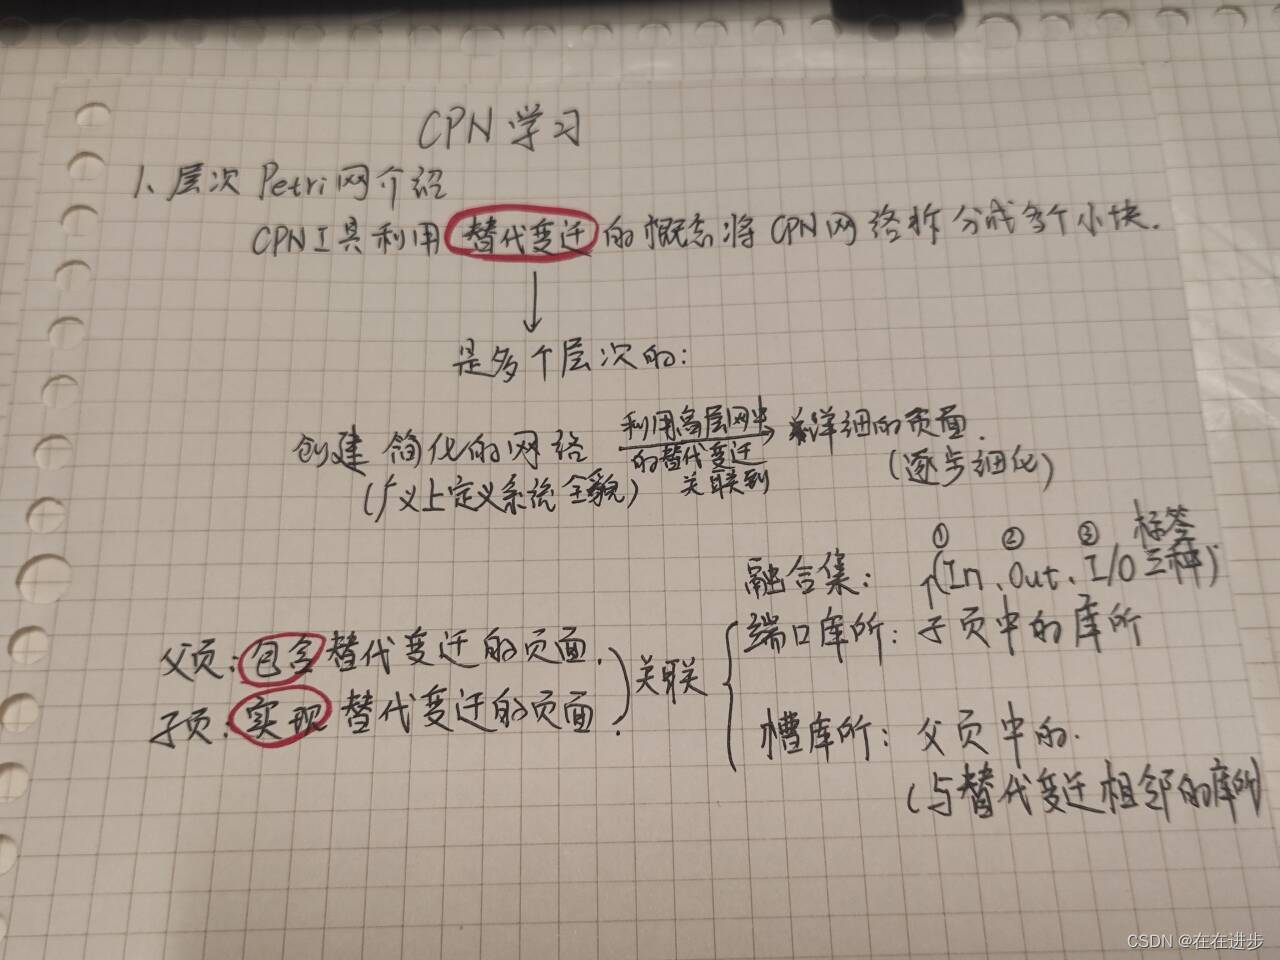 CPN 学习
1、层次 Petri网介绍
CPN工具利用 替代变迁 的概念将 CPN网络拆分成多个小块.
是多个层次的:
创建 简化的网络 利用高层网中 详细的页面.
(广义上定义系统全貌) 的替代变迁 (逐步细化)
关联到
① ② ③ 标签
融合集: (In、Out、I/O三种)
父页: 包含替代变迁的页面. 关联 端口库所: 子页中的库所
子页: 实现替代变迁的页面. 槽库所: 父页中的.
(与替代变迁相邻的库所)
CSDN @在在进步